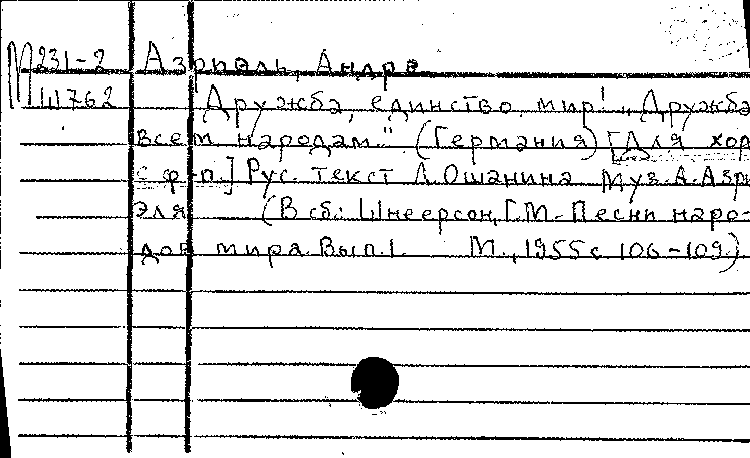 М231-2 Азриэль, Андре
Ш762 Дружба, единство, мир! „Дружба
всем народам." (Германия) [Для хор
с ф-п.] Рус. текст Л. Ошанина муз. А. Азри
эля (В сб: Шнеерсон, Г.М. Песни наро-
дов мира. Вып. 1. М., 1955 с 106-109.)